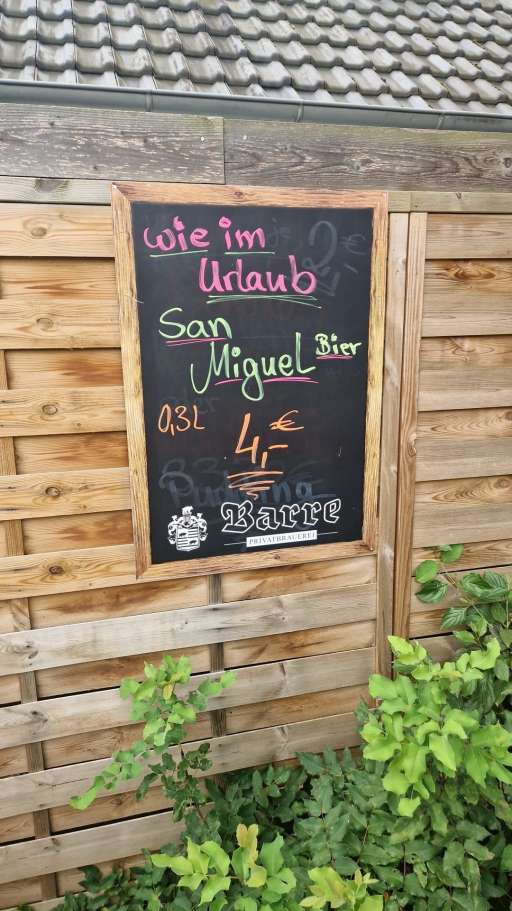 wie im
Urlaub
San
Miguel Bier
0,3L
4,- €
Barre
PRIVATBRAUEREI